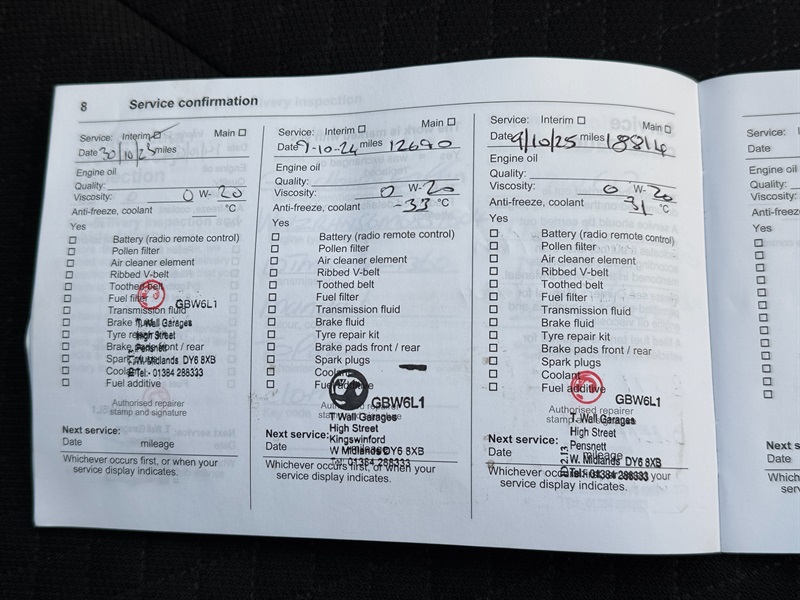 8 Service confirmation
Service: Interim Main
Date 30/10/23 miles
Engine oil
Quality:
Viscosity: 0 W- 20
Anti-freeze, coolant °C
Yes
Battery (radio remote control)
Pollen filter
Air cleaner element
Ribbed V-belt
Toothed belt
Fuel filter
Transmission fluid
Brake fluid
Tyre repair kit
Brake pads front / rear
Spark plugs
Coolant
Fuel additive
GBW6L1
T Wall Garages
High Street
Pensnett
W. Midlands DY6 8XB
Tel:- 01384 288333
Authorised repairer
stamp and signature
Next service:
Date mileage
Whichever occurs first, or when your
service display indicates.
Service: Interim Main
Date 9-10-24 miles 12690
Engine oil
Quality:
Viscosity: 0 W- 20
Anti-freeze, coolant -33 °C
Yes
Battery (radio remote control)
Pollen filter
Air cleaner element
Ribbed V-belt
Toothed belt
Fuel filter
Transmission fluid
Brake fluid
Tyre repair kit
Brake pads front / rear
Spark plugs
Coolant
Fuel additive
GBW6L1
Authorised repairer
T Wall Garages
High Street
Kingswinford
W Midlands DY6 8XB
Next service:
Date
Whichever occurs first, or when your
service display indicates.
Service: Interim Main
Date 9/10/25 miles 18814
Engine oil
Quality:
Viscosity: 0 W- 20
Anti-freeze, coolant 31 °C
Yes
Battery (radio remote control)
Pollen filter
Air cleaner element
Ribbed V-belt
Toothed belt
Fuel filter
Transmission fluid
Brake fluid
Tyre repair kit
Brake pads front / rear
Spark plugs
Coolant
Fuel additive
GBW6L1
Authorised repairer
T. Wall Garages
High Street
Pensnett
W. Midlands DY6 8XB
Tel:- 01384 288333
Next service:
Date mileage
Whichever occurs first, or when your
service display indicates.
Service:
Date
Engine oil
Quality:
Viscosity:
Yes
Date